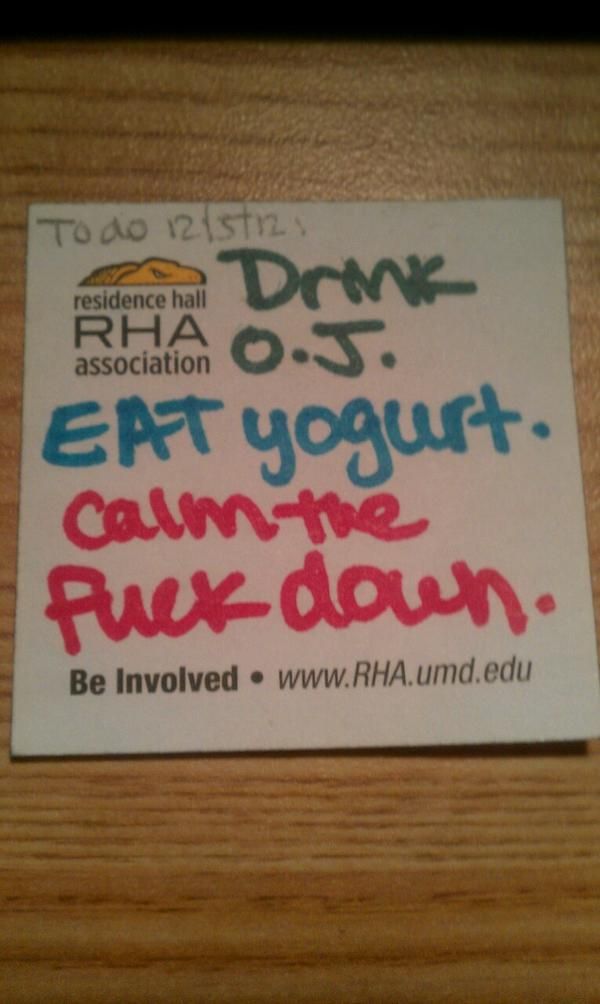 To do 12/5/12:
Drink
residence hall
RHA
O.J.
association
EAT yogurt.
Calm the
Fuck down.
Be Involved • www.RHA.umd.edu